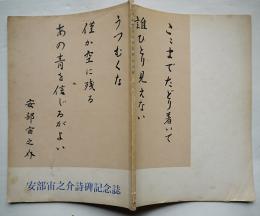 ここまでたどり着いて
誰ひとり見えない
うつむくな
僅か空に残る
あの青を信じるがよい
安部宙之介
安部宙之介詩碑記念誌